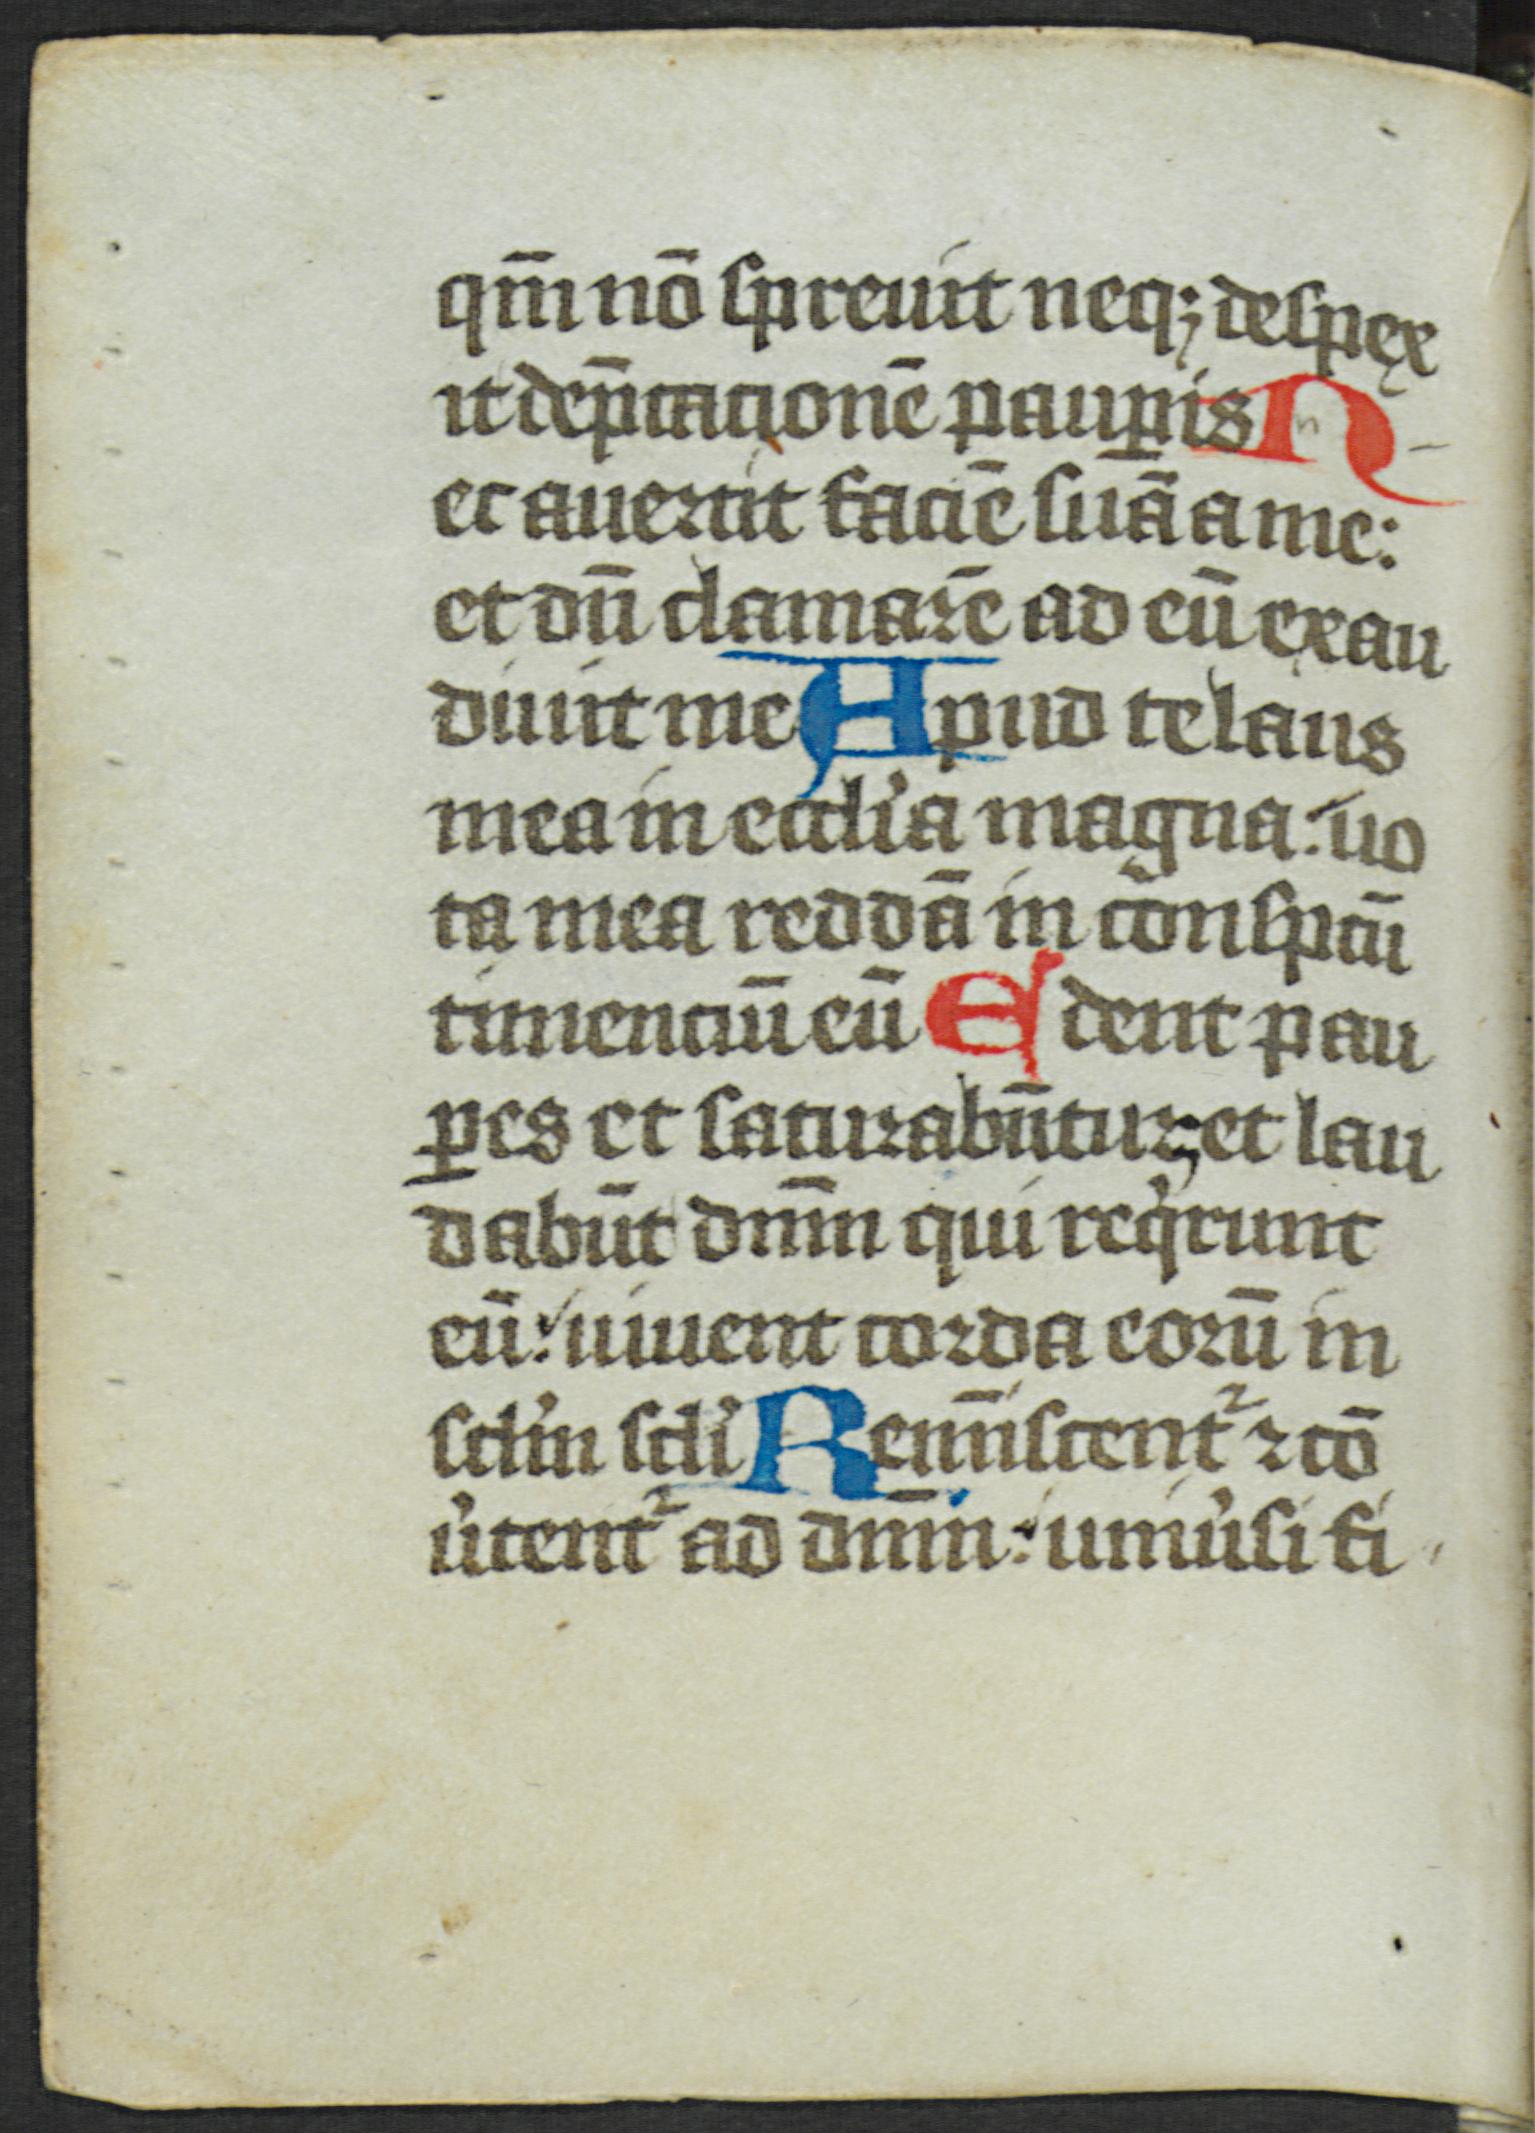 qm̄ nō spreuit neqꝫ despex
it dep̄cationē paup̲is N
ec auertit faciē suā a me:
et dū clamarē ad eū exau
diuit me Apud te laus
mea in eccl'ia magna: uo
ta mea reddā in cōnsp̄cū
timenciū eū Edent pau
ꝑes et saturabūtur et lau
dabūt dn̄m qui req'runt
eū: uiuent corda eorū in
scl'm scl'i Remīscentᷣ ⁊ cō
u'tentᷣ ad dn̄m: uniu'si fi